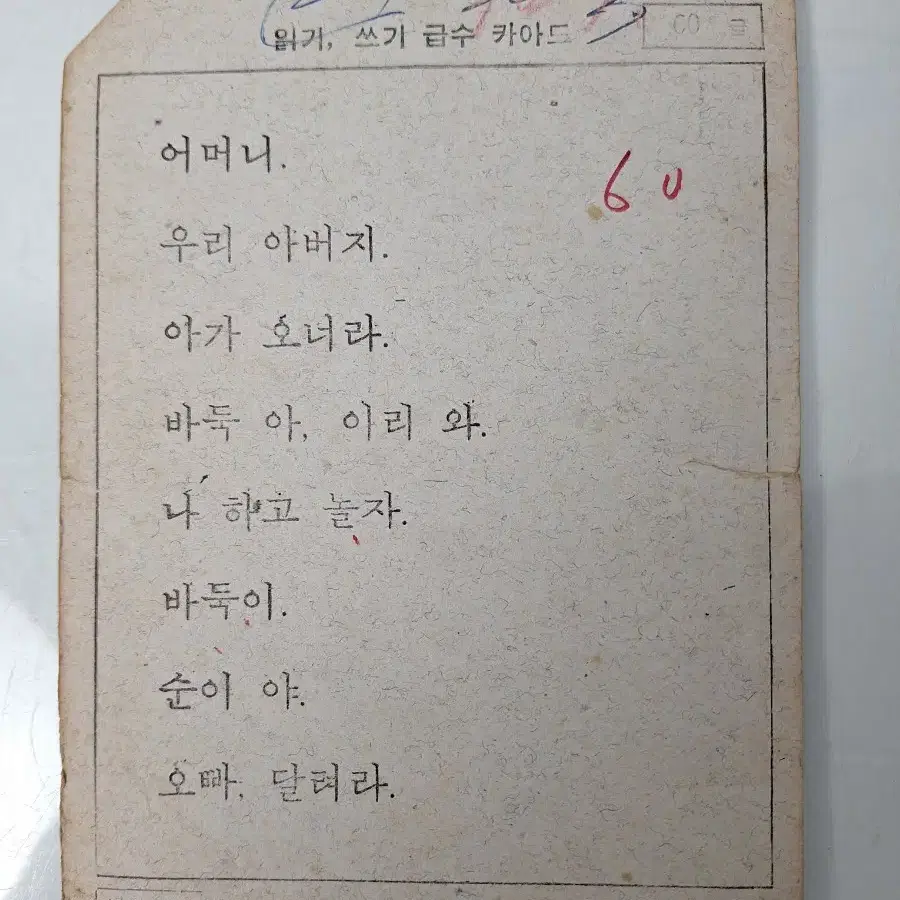 읽기, 쓰기 급수 카아드
어머니.
60
우리 아버지.
아가 오너라.
바둑 아, 이리 와.
나 하고 놀자.
바둑이.
순이 야.
오빠, 달려라.